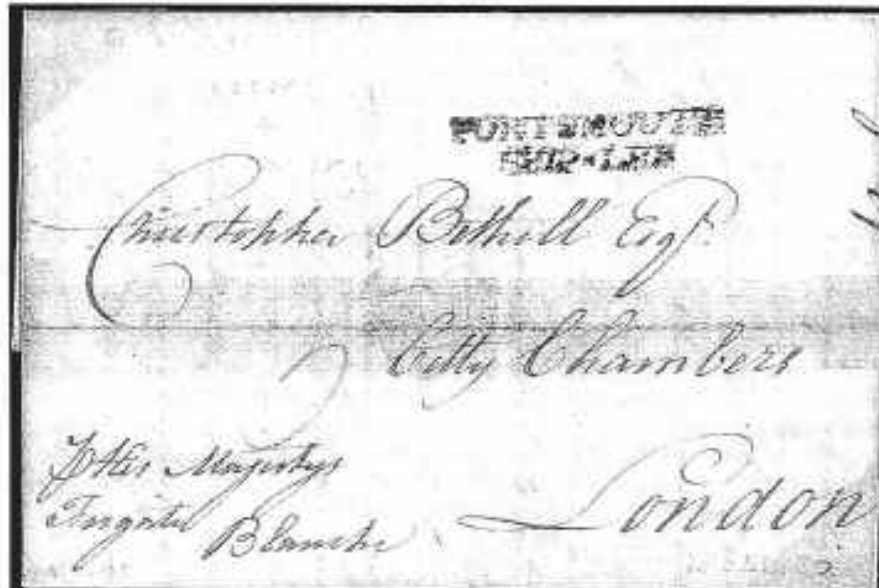 PORTSMOUTH
SHIP-LER
Christopher Bethell Esqr.
Citty Chambers
London
P His Majestys
Frigate
Blanche